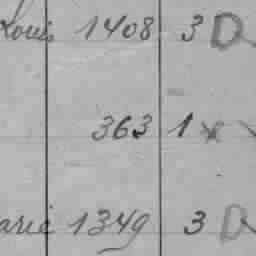 Louis 1408 3 D
363 1 x
arie 1349 3 D